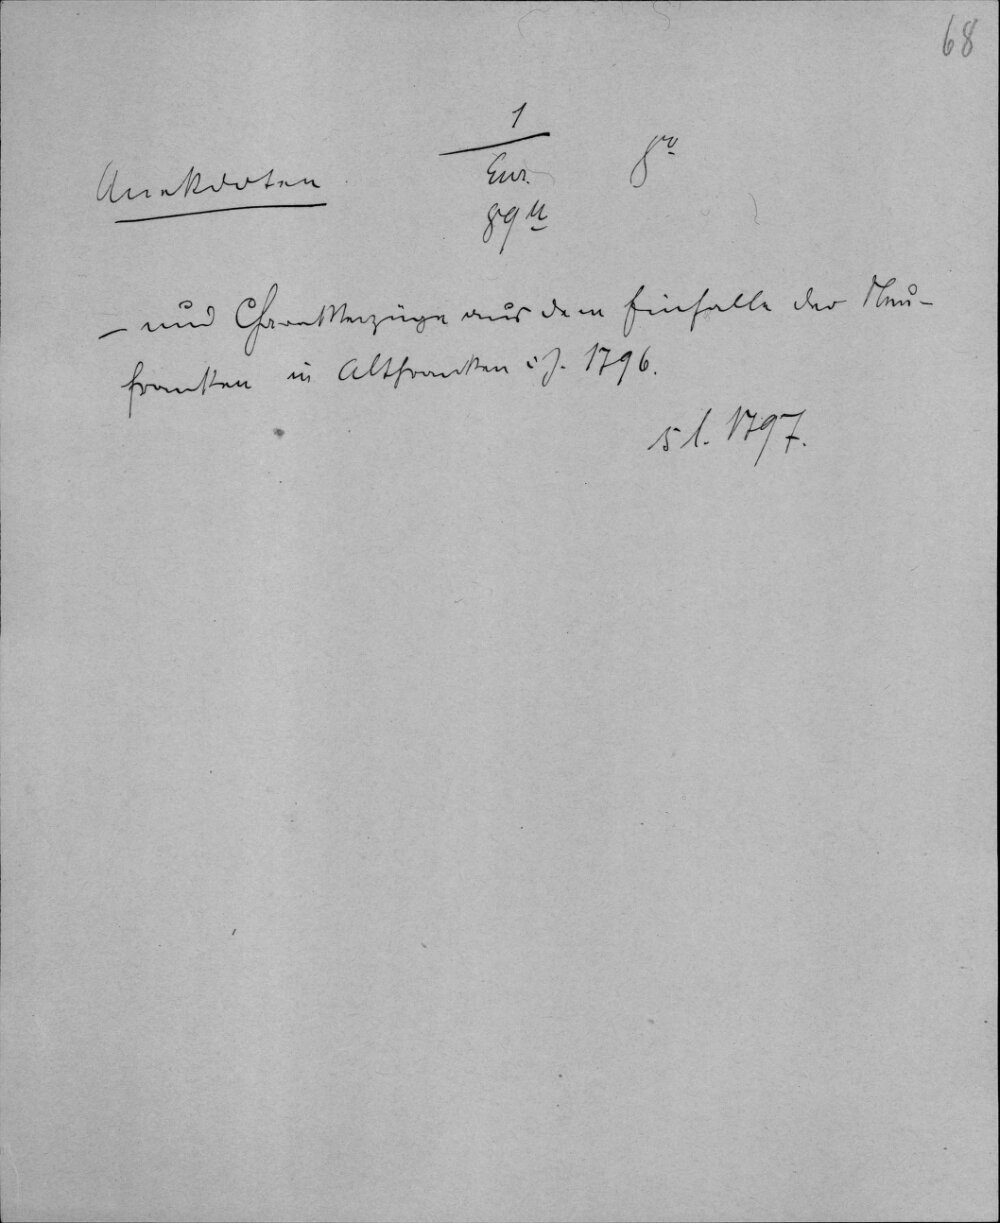 68
1
Anekdoten
Eur.
8vo
89u
– und Charakterzüge aus dem Einfalle der Neu-
franken in Altfranken i. J. 1796.
s l. 1797.